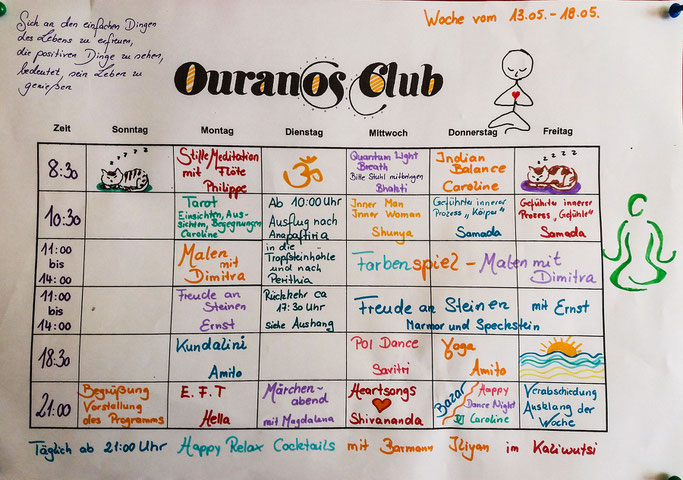 Sich an den einfachen Dingen
des Lebens zu erfreuen,
die positiven Dinge zu sehen,
bedeutet, sein Leben zu
genießen
Woche vom 13.05.-18.05.
Ouranos Club
Zeit Sonntag Montag Dienstag Mittwoch Donnerstag Freitag
8:30
z z z z
Stille Meditation
mit Flöte
Philippe
ॐ
Quantum Light
Breath
Bitte Stuhl mitbringen
Bhakti
Indian
Balance
Caroline
z z z z
10:30
Tarot
Einsichten, Aus-
sichten, Begegnungen
Caroline
Ab 10:00 Uhr
Ausflug nach
Anapaftiria
in die
Tropfsteinhöhle
und nach
Perithia
Rückkehr ca
17:30 Uhr
siehe Aushang
Inner Man
Inner Woman
Shunya
Geführter innerer
Prozess „Körper“
Samada
Geführter innerer
Prozess „Gefühle“
Samada
11:00
bis
14:00
Malen
mit
Dimitra
Farbenspiel - Malen mit
Dimitra
11:00
bis
14:00
Freude an
Steinen
Ernst
Freude an Steinen mit Ernst
Marmor und Speckstein
18:30
Kundalini
Amito
Pol Dance
Savitri
Yoga
Amito
21:00
Begrüßung
Vorstellung
des Programms
E.F.T
Hella
Märchen-
abend
mit Magdalena
Heartsongs
Shivananda
Bazar
Happy
Dance Night
Caroline
Verabschiedung
Ausklang der
Woche
Täglich ab 21:00 Uhr Happy Relax Cocktails mit Barmann Iliyan im Kaliwutsi